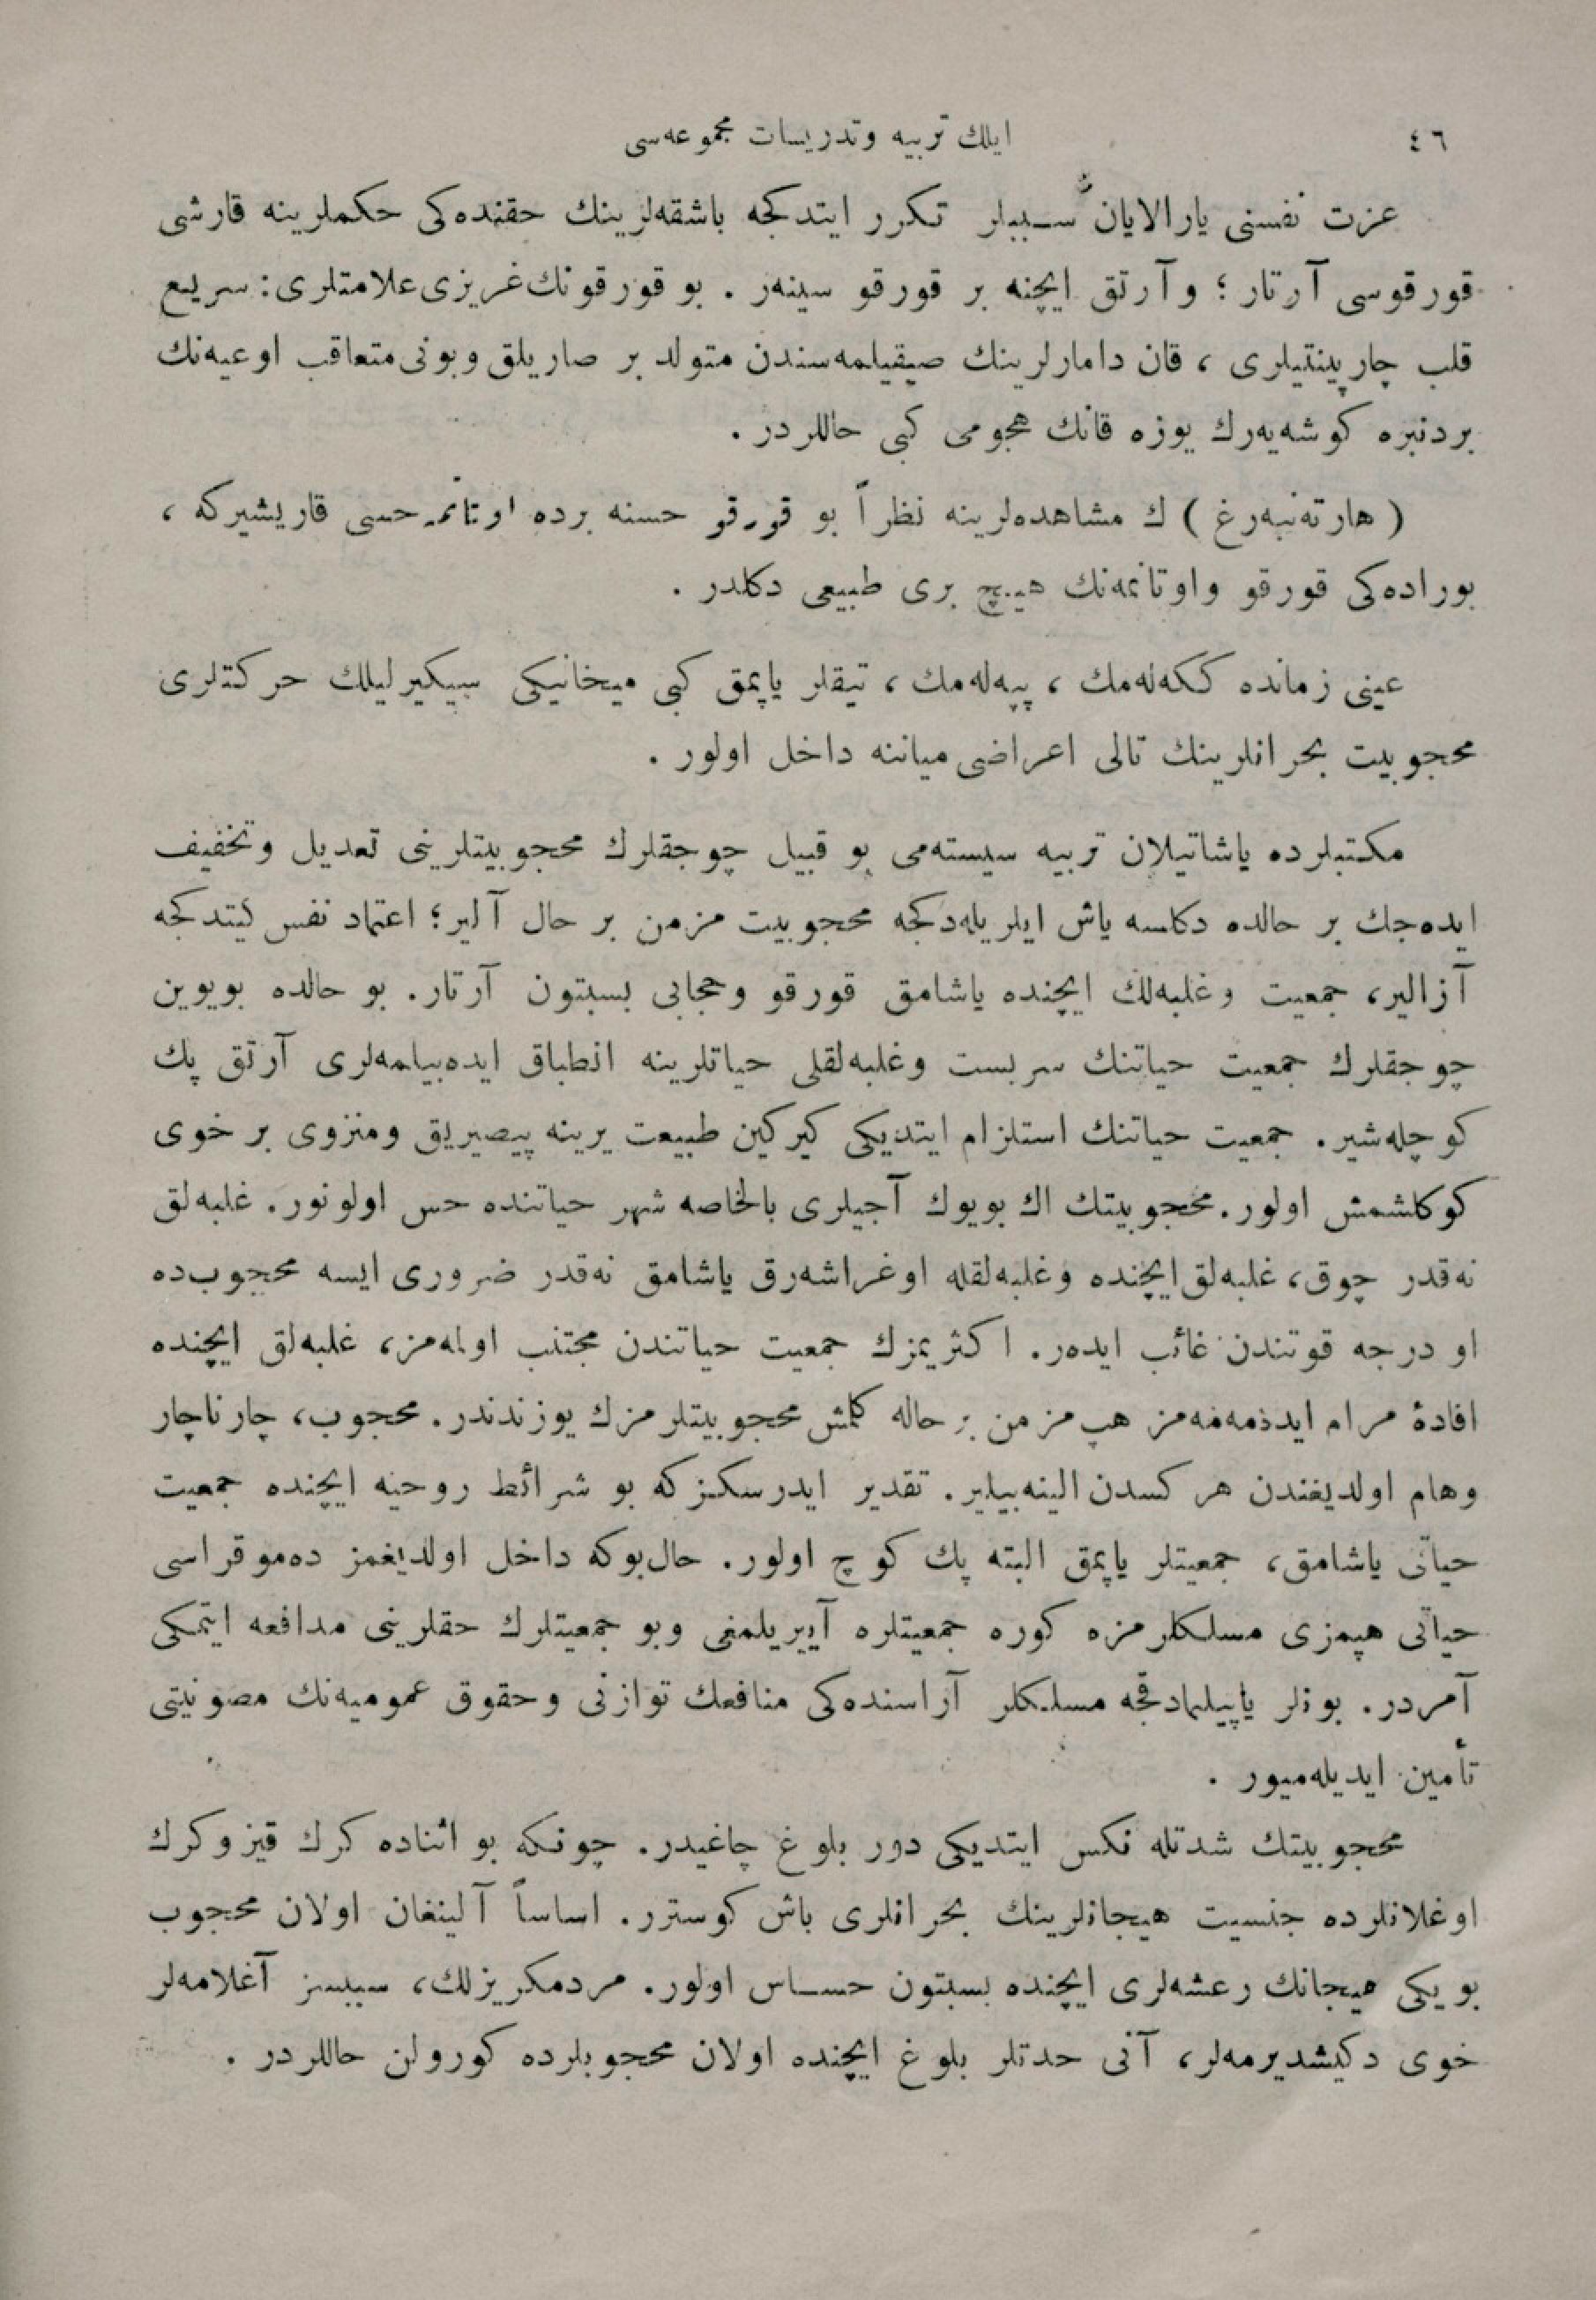 ٤٦
ایلك تربیه وتدریسات مجموعه‌سی
عزت نفسنی یارالایان سببلر تکرر ایتدکجه باشقه‌لرینك حقنده‌کی حکملرینه قارشی
قورقوسی آرتار ؛ وآرتق ایچنه بر قورقو سینه‌ر . بو قورقونك غریزی علامتلری : سریع
قلب چارپینتیلری ، قان دامارلرینك صیقیلمه‌سندن متولد بر صاریلق وبونی متعاقب اوعیه‌نك
بردنبره کوشه‌یه‌رك یوزه قانك هجومی کبی حاللردر .
( هارته‌نبه‌رغ ) ك مشاهده‌لرینه نظراً بو قورقو حسنه برده اوتانمه حسی قاریشیرکه ،
بوراده‌کی قورقو واوتانمه‌نك هیچ بری طبیعی دکلدر .
عینی زمانده ککه‌له‌مك ، پپه‌له‌مك ، تیقلر یاپمق کبی میخانیکی سیکیرلیلك حرکتلری
محجوبیت بحرانلرینك تالی اعراضی میاننه داخل اولور .
مکتبلرده یاشاتیلان تربیه سیسته‌می بو قبیل چوجقلرك محجوبیتلرینی تعدیل وتخفیف
ایده‌جك بر حالده دکلسه یاش ایلریله‌دکجه محجوبیت مزمن بر حال آلیر؛ اعتماد نفس کیتدکجه
آزالیر، جمعیت وغلبه‌لك ایچنده یاشامق قورقو وحجابی بسبتون آرتار. بو حالده بویوین
چوجقلرك جمعیت حیاتنك سربست وغلبه‌لقلی حیاتلرینه انطباق ایده‌بیلمه‌لری آرتق پك
کوچله‌شیر. جمعیت حیاتنك استلزام ایتدیکی کیرکین طبیعت یرینه پیصیریق ومنزوی بر خوی
کوکلشمش اولور. محجوبیتك اك بویوك آجیلری بالخاصه شهر حیاتنده حس اولونور. غلبه‌لق
نه‌قدر چوق، غلبه‌لق ایچنده وغلبه‌لقله اوغراشه‌رق یاشامق نه‌قدر ضروری ایسه محجوب‌ده
او درجه قوتندن غائب ایده‌ر. اکثریمزك جمعیت حیاتندن مجتنب اوله‌مز، غلبه‌لق ایچنده
افادهٔ مرام ایدنمه‌مه‌مز هپ مزمن بر حاله کلمش محجوبیتلرمزك یوزندندر. محجوب، چارناچار
وهام اولدیغندن هر کسدن الینه‌بیلیر. تقدیر ایدرسکز که بو شرائط روحیه ایچنده جمعیت
حیاتی یاشامق، جمعیتلر یاپمق البته پك کوچ اولور. حال‌بوکه داخل اولدیغمز ده‌موقراسی
حیاتی هپمزی مسلکلرمزه کوره جمعیتلره آییریلمغی وبو جمعیتلرك حقلرینی مدافعه ایتمکی
آمردر. بونلر یاپیلمادقجه مسلکلر آراسنده‌کی منافعك توازنی وحقوق عمومیه‌نك مصونیتی
تأمین ایدیله‌میور .
محجوبیتك شدتله نکس ایتدیکی دور بلوغ چاغیدر. چونکه بو اثناده کرك قیز وکرك
اوغلانلرده جنسیت هیجانلرینك بحرانلری باش کوسترر. اساساً آلینغان اولان محجوب
بو یکی هیجانك رعشه‌لری ایچنده بسبتون حساس اولور. مردمکریزلك، سببسز آغلامه‌لر
خوی دکیشدیرمه‌لر، آنی حدتلر بلوغ ایچنده اولان محجوبلرده کورولن حاللردر .